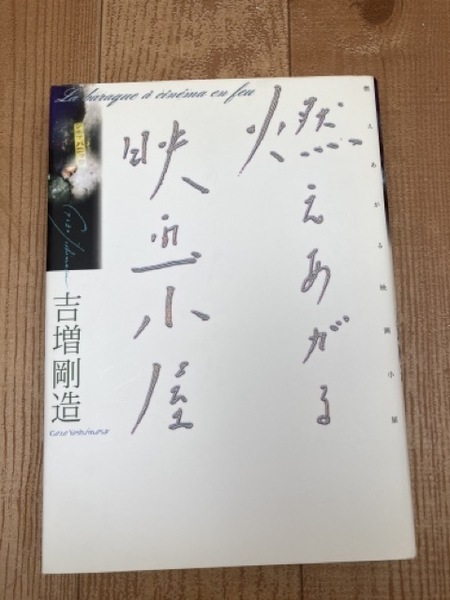 La baraque à cinéma en feu
燃えあがる
映画小屋
燃えあがる映画小屋
吉増剛造
Gozo Yoshimasu